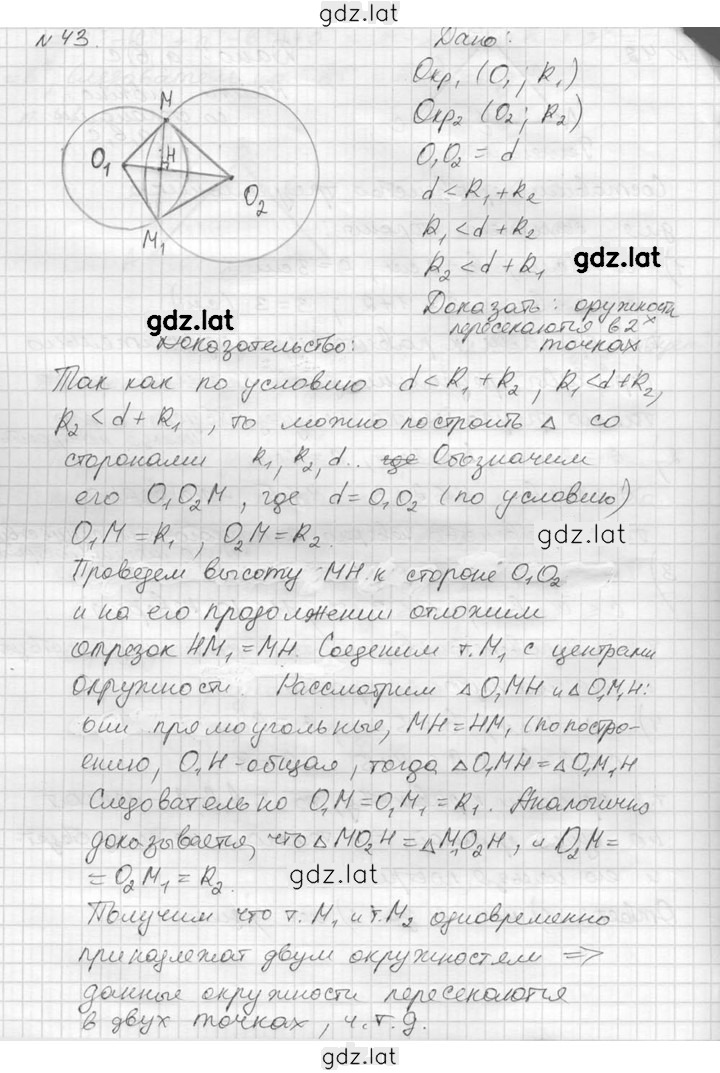 gdz.lat
N 43.
M
O₁
H
O₂
M₁
Дано:
Окр₁ (O₁; R₁)
Окр₂ (O₂; R₂)
O₁O₂ = d
d < R₁ + R₂
R₁ < d + R₂
R₂ < d + R₁
gdz.lat
Доказать: окружности
пересекаются в 2ˣ
точках
gdz.lat
Доказательство:
Так как по условию d < R₁ + R₂, R₁ < d + R₂,
R₂ < d + R₁, то можно построить Δ со
сторонами R₁, R₂, d.. где Обозначим
его O₁O₂M, где d = O₁O₂ (по условию)
O₁M = R₁, O₂M = R₂
gdz.lat
Проведем высоту MH к стороне O₁O₂
и на его продолжении отложим
отрезок HM₁ = MH. Соеденим т. M₁ с центрами
окружности. Рассмотрим Δ O₁MH и Δ O₁M₁H:
они прямоугольные, MH = HM₁ (по постро-
ению, O₁H - общая, тогда Δ O₁MH = Δ O₁M₁H
Следовательно O₁M = O₁M₁ = R₁. Аналогично
доказывается, что Δ MO₂H = Δ M₁O₂H, и O₂M =
= O₂M₁ = R₂.
gdz.lat
Получим что т. M₁ и т. M₂ одновременно
принадлежат двум окружностям ⇒
данные окружности пересекаются
в двух точках, ч.т.д.
gdz.lat